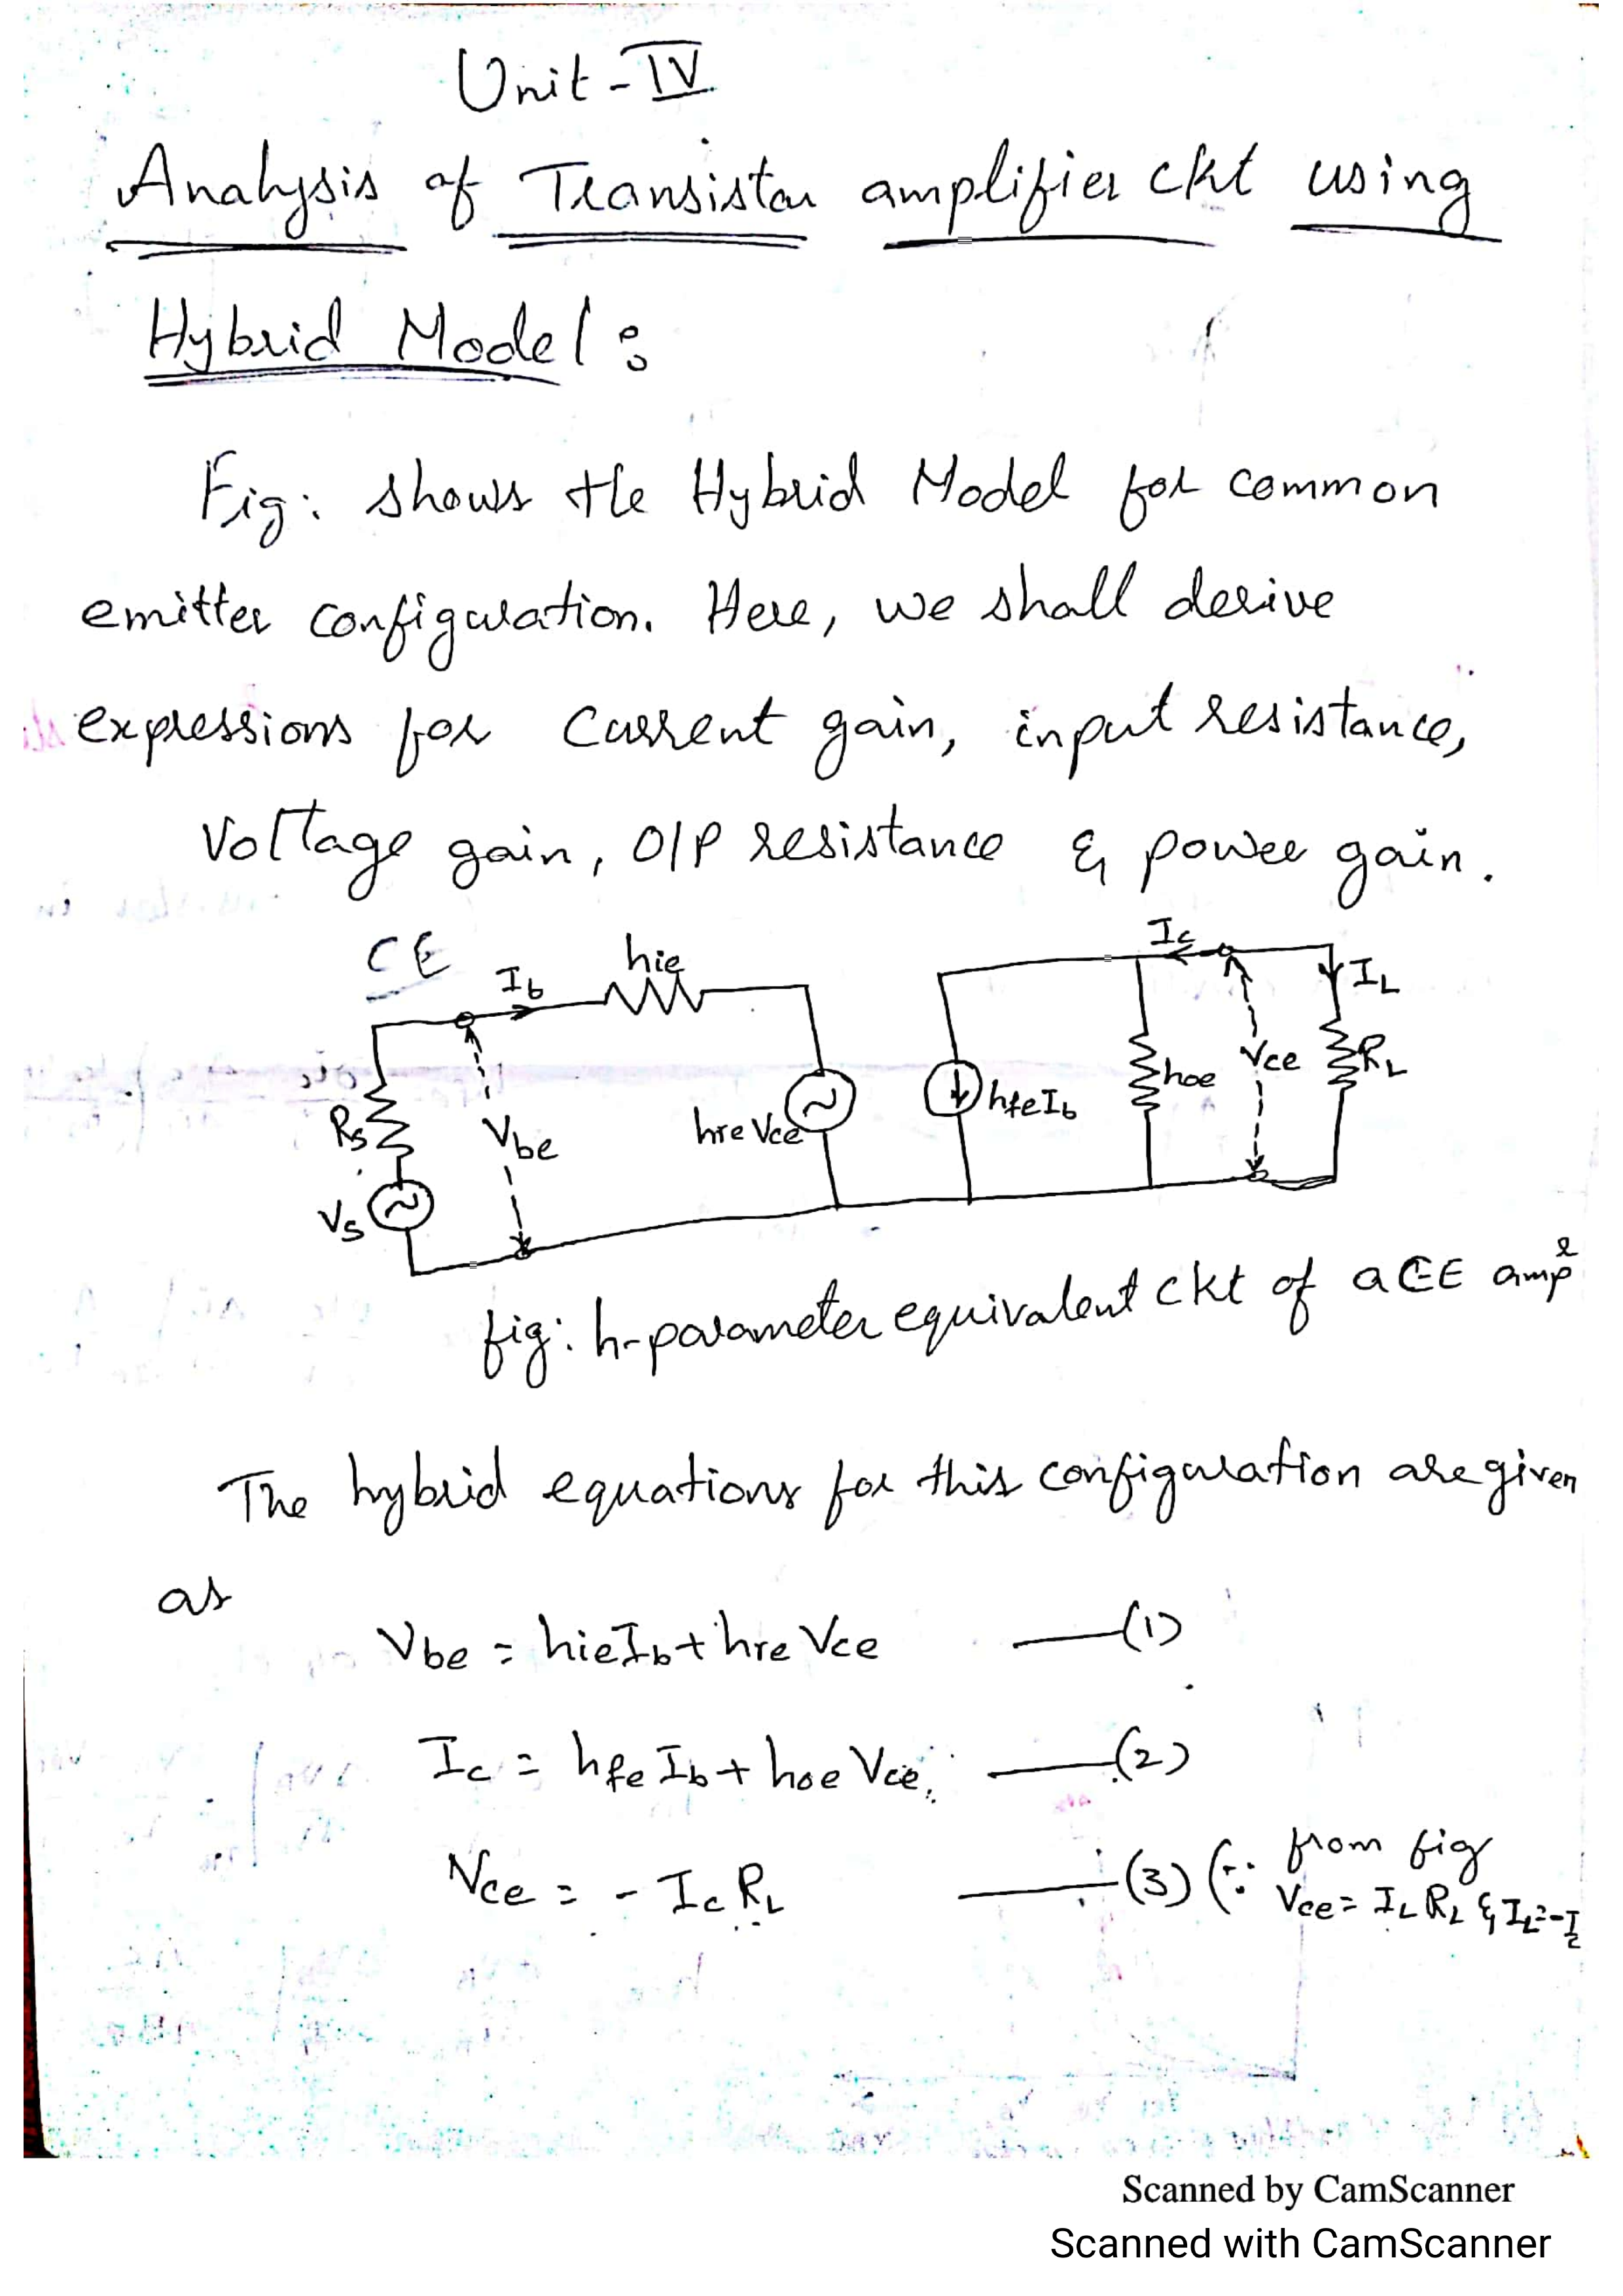 Unit-IV
Analysis of Transistor amplifier ckt using
Hybrid Model :
Fig: shows the Hybrid Model for common
emitter configuration. Here, we shall derive
expressions for Current gain, input resistance,
Voltage gain, O/P resistance & power gain.
CE
Ib
hie
Ic
IL
Rs
Vbe
hre Vce
hfeIb
hoe
Vce
RL
Vs
fig: h-parameter equivalent ckt of a CE ampr
The hybrid equations for this configuration are given
as
Vbe = hieIb + hre Vce —(1)
Ic = hfe Ib + hoe Vce. —(2)
Vce = - Ic RL —(3) (∵ from fig
Vce = IL RL & IL=-Ic
Scanned by CamScanner
Scanned with CamScanner